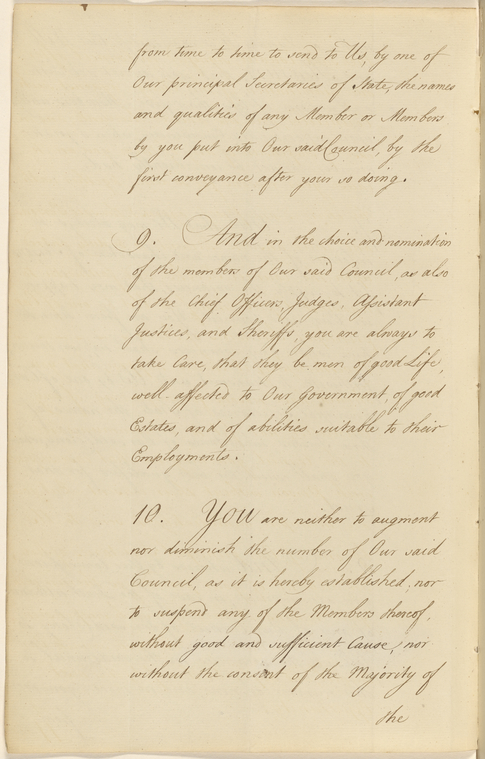 from time to time to send to Us, by one of
Our principal Secretaries of State, the names
and qualities of any Member or Members
by you put into Our said Council, by the
first conveyance after your so doing.
9. And in the choice and nomination
of the members of Our said Council, as also
of the Chief Officers, Judges, Assistant
Justices, and Sheriffs, you are always to
take Care, that they be men of good Life,
well affected to Our Government, of good
Estates, and of abilities suitable to their
Employments.
10. You are neither to augment
nor diminish the number of Our said
Council, as it is hereby established, nor
to suspend any of the Members thereof,
without good and sufficient Cause, nor
without the consent of the Majority of
the